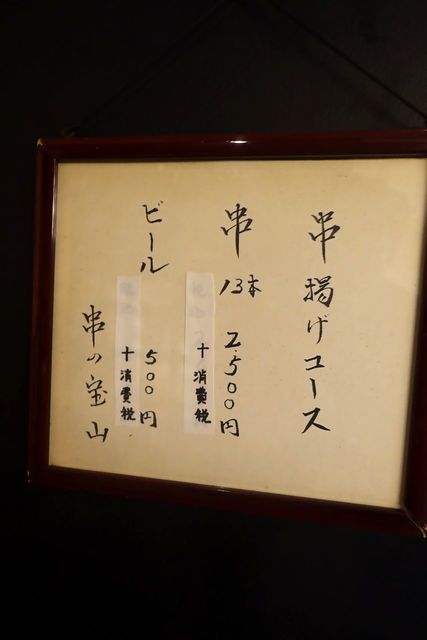 串揚げコース
串 13本 2,500円
十消費税
ビール 500円
十消費税
串の宝山